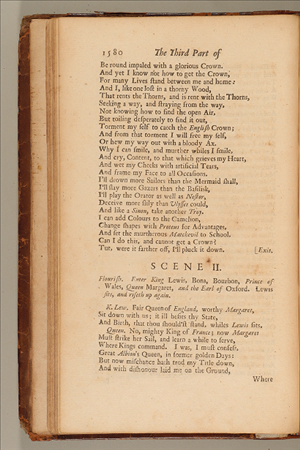 1580 The Third Part of
Be round impaled with a glorious Crown.
And yet I know not how to get the Crown,
For many Lives stand between me and home:
And I, like one lost in a thorny Wood,
That rents the Thorns, and is rent with the Thorns,
Seeking a way, and straying from the way,
Not knowing how to find the open Air,
But toiling desperately to find it out,
Torment my self to catch the English Crown;
And from that torment I will free my self,
Or hew my way out with a bloody Ax.
Why I can smile, and murther whiles I smile,
And cry, Content, to that which grieves my Heart,
And wet my Cheeks with artificial Tears,
And frame my Face to all Occasions.
I'll drown more Sailors than the Mermaid shall,
I'll slay more Gazers than the Basilisk,
I'll play the Orator as well as Nestor,
Deceive more slily than Ulysses could,
And like a Sinon, take another Troy.
I can add Colours to the Camelion,
Change shapes with Proteus for Advantages,
And set the murtherous Machevil to School.
Can I do this, and cannot get a Crown?
Tut, were it farther off, I'll pluck it down. [Exit.
SCENE II.
Flourish. Enter King Lewis, Bona, Bourbon, Prince of
Wales, Queen Margaret, and the Earl of Oxford. Lewis
sits, and riseth up again.
K. Lew. Fair Queen of England, worthy Margaret,
Sit down with us; it ill befits thy State,
And Birth, that thou should'st stand, whiles Lewis sits.
Queen. No, mighty King of France; now Margaret
Must strike her Sail, and learn a while to serve,
Where Kings command. I was, I must confess,
Great Albion's Queen, in former golden Days:
But now mischance hath trod my Title down,
And with dishonour laid me on the Ground,
Where